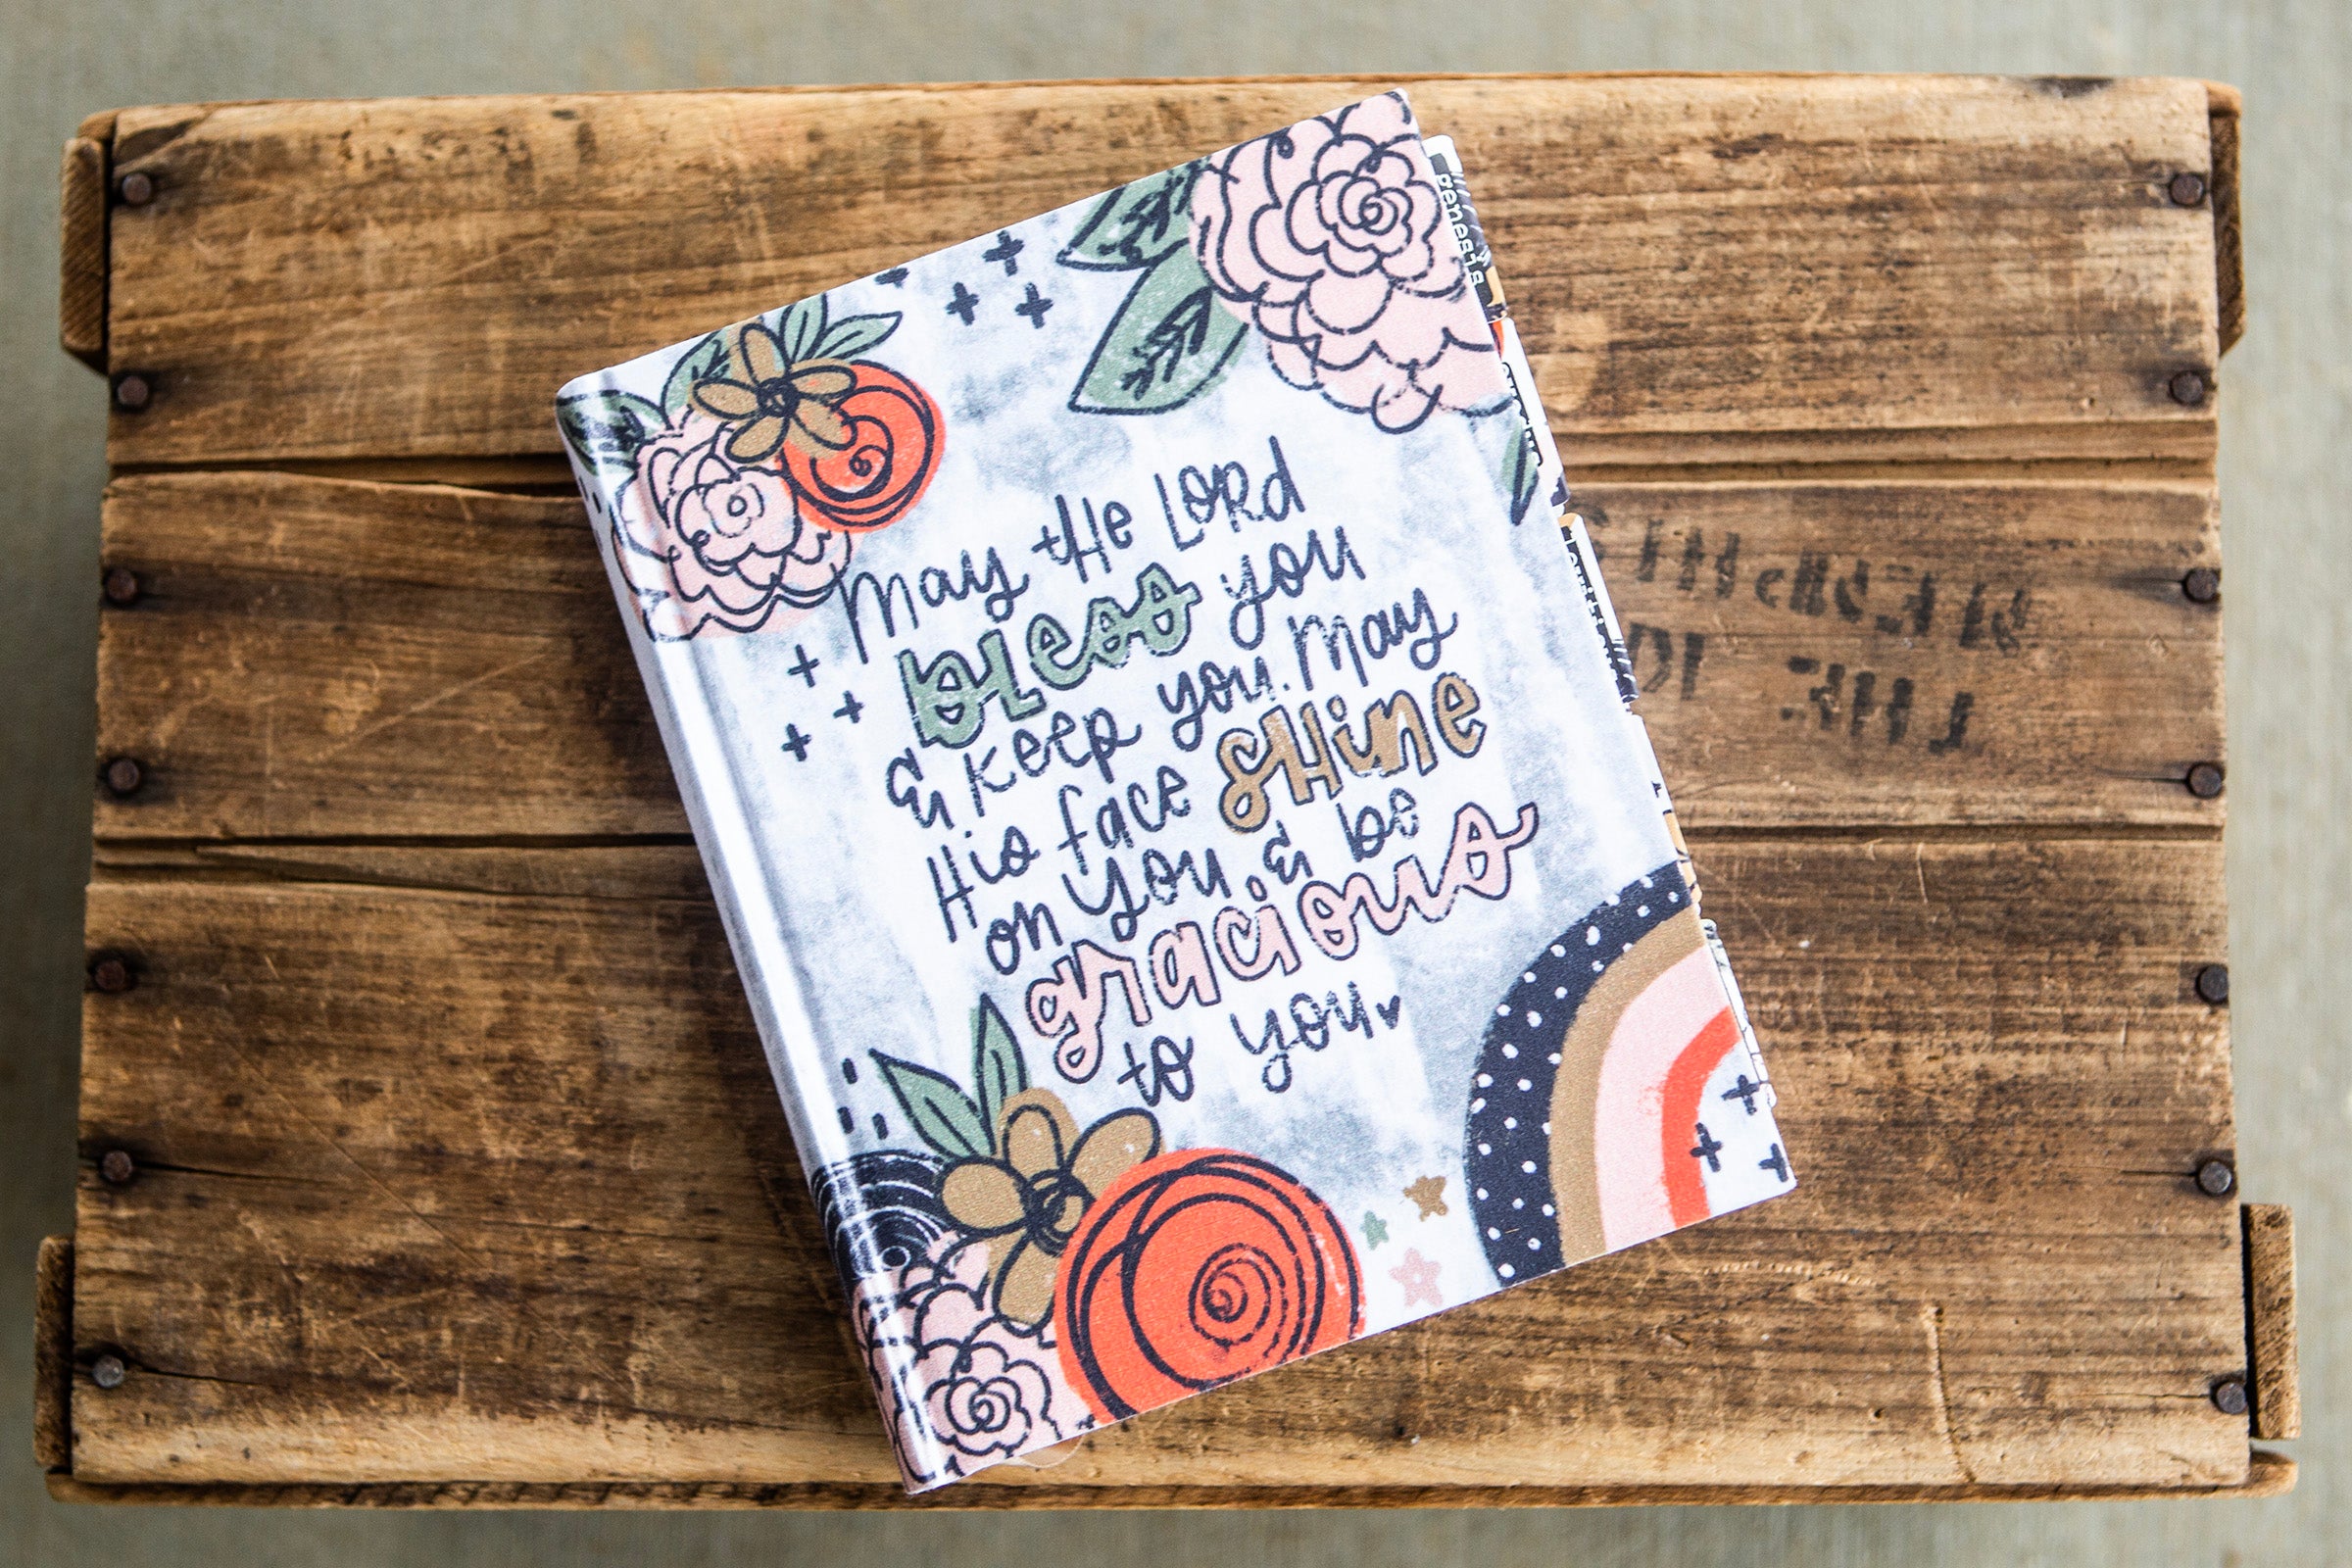 May the Lord
bless you
& keep you. May
His face shine
on you & be
gracious
to you
genesis